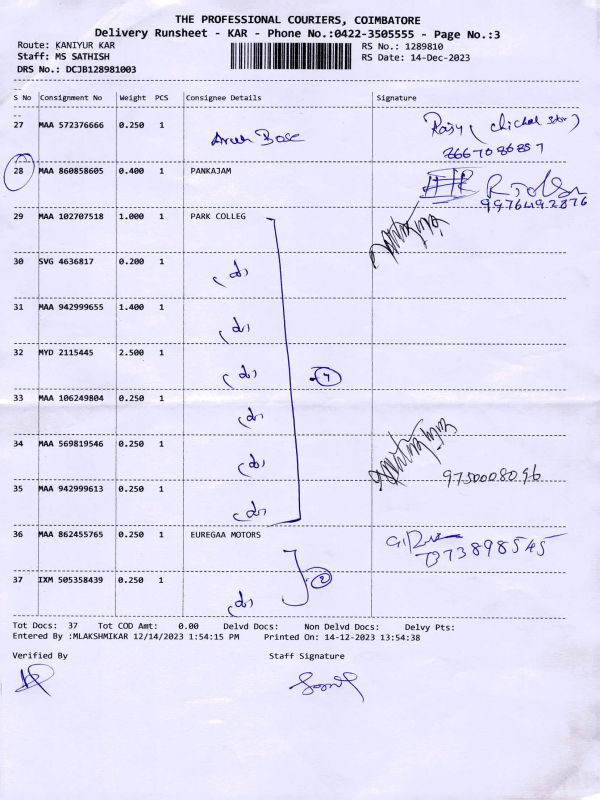 THE PROFESSIONAL COURIERS, COIMBATORE
Delivery Runsheet - KAR - Phone No.:0422-3505555 - Page No.:3
Route: KANIYUR KAR RS No.: 1289810
Staff: MS SATHISH RS Date: 14-Dec-2023
DRS No.: DCJB128981003
S No Consignment No Weight PCS Consignee Details Signature
27 MAA 572376666 0.250 1 Bose
28 MAA 860858605 0.400 1 PANKAJAM
9976492876
29 MAA 102707518 1.000 1 PARK COLLEG
30 SVG 4636817 0.200 1
31 MAA 942999655 1.400 1
32 MYD 2115445 2.500 1
33 MAA 106249804 0.250 1
34 MAA 569819546 0.250 1
9750008096
35 MAA 942999613 0.250 1
36 MAA 862455765 0.250 1 EUREGAA MOTORS
37 IXM 505358439 0.250 1 2
Tot Docs: 37 Tot COD Amt: 0.00 Delvd Docs: Non Delvd Docs: Delvy Pts:
Entered By :MLAKSHMIKAR 12/14/2023 1:54:15 PM Printed On: 14-12-2023 13:54:38
Verified By Staff Signature